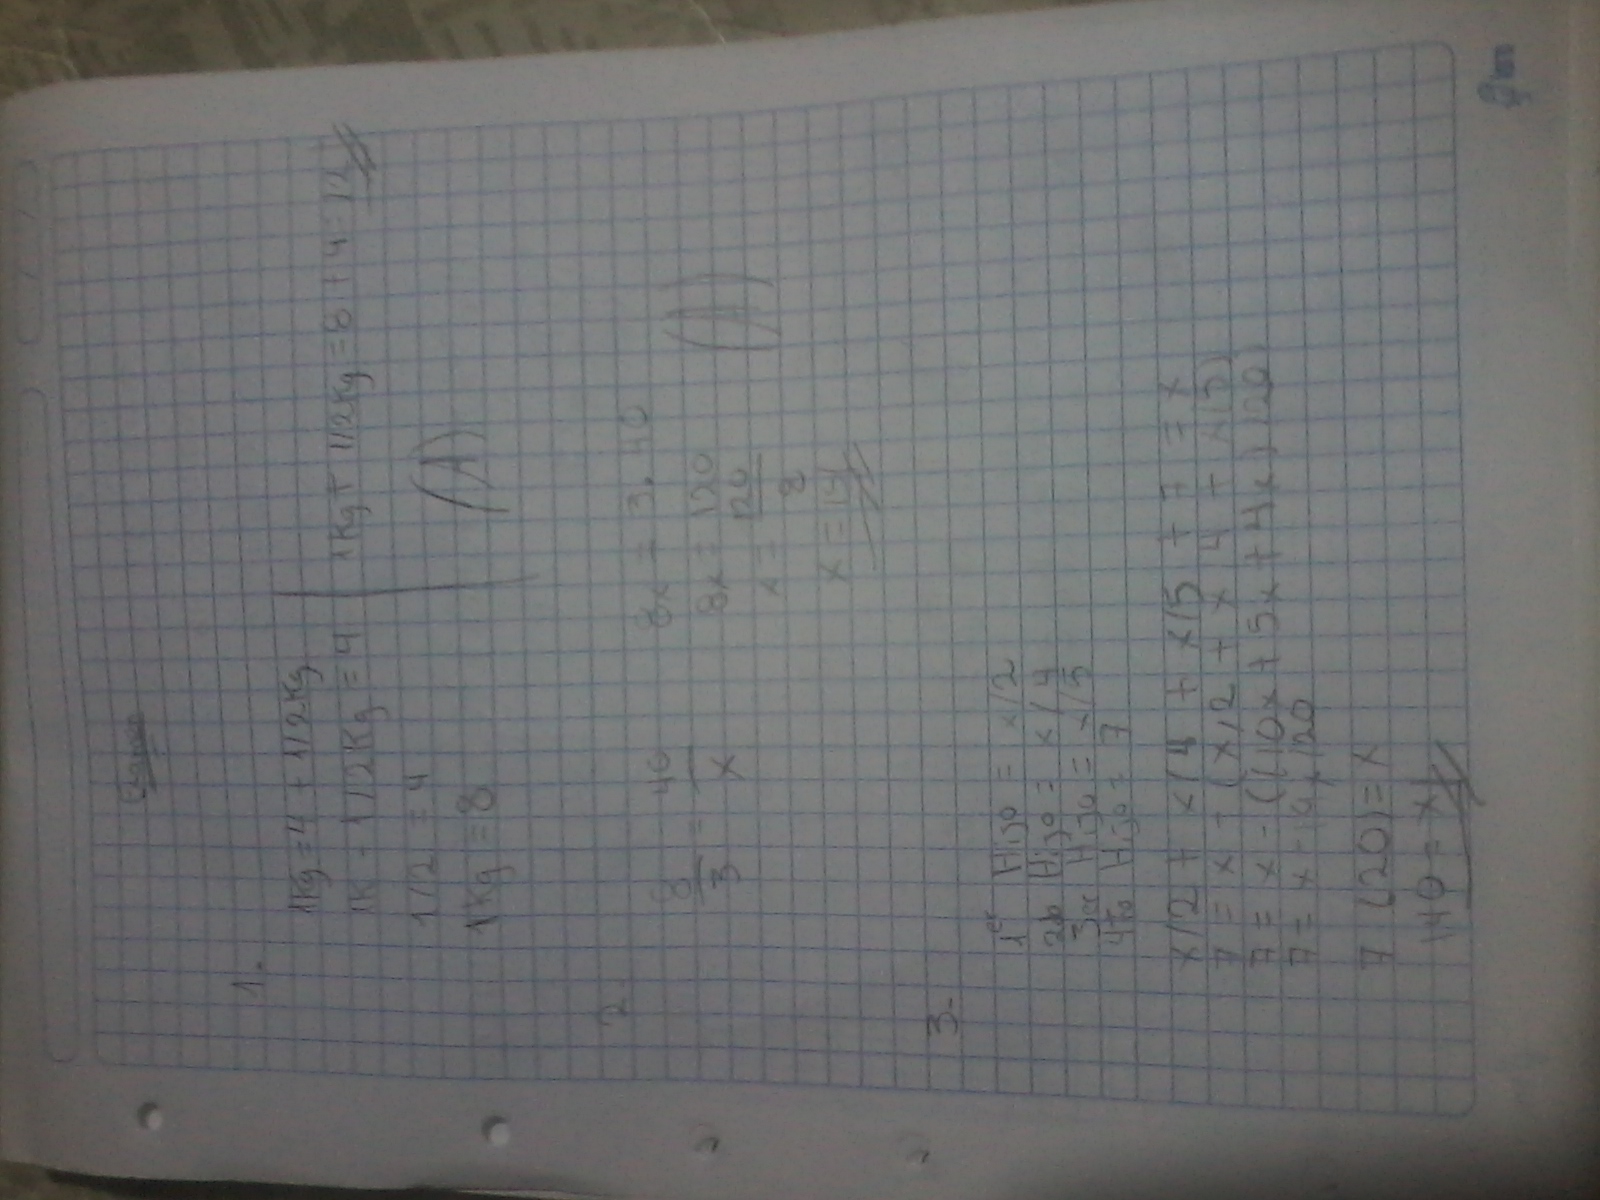 Examen
1.
1Kg = 4 + 1/2Kg
1K - 1/2Kg = 4
1/2 = 4
1Kg = 8
1Kg + 1/2Kg = 8 + 4 = 12
(A)
2.
8/3 = 40/x
8x = 3. 40
8x = 120
x = 120/8
x = 15
(A)
3-
1er Hijo = x/2
2do Hijo = x/4
3er Hijo = x/5
4to Hijo = 7
x/2 + x/4 + x/5 + 7 = x
7 = x - (x/2 + x/4 + x/5)
7 = x - ((10x + 5x + 4x) /20)
7 = x - 19x/20
7 (20) = x
140 = x